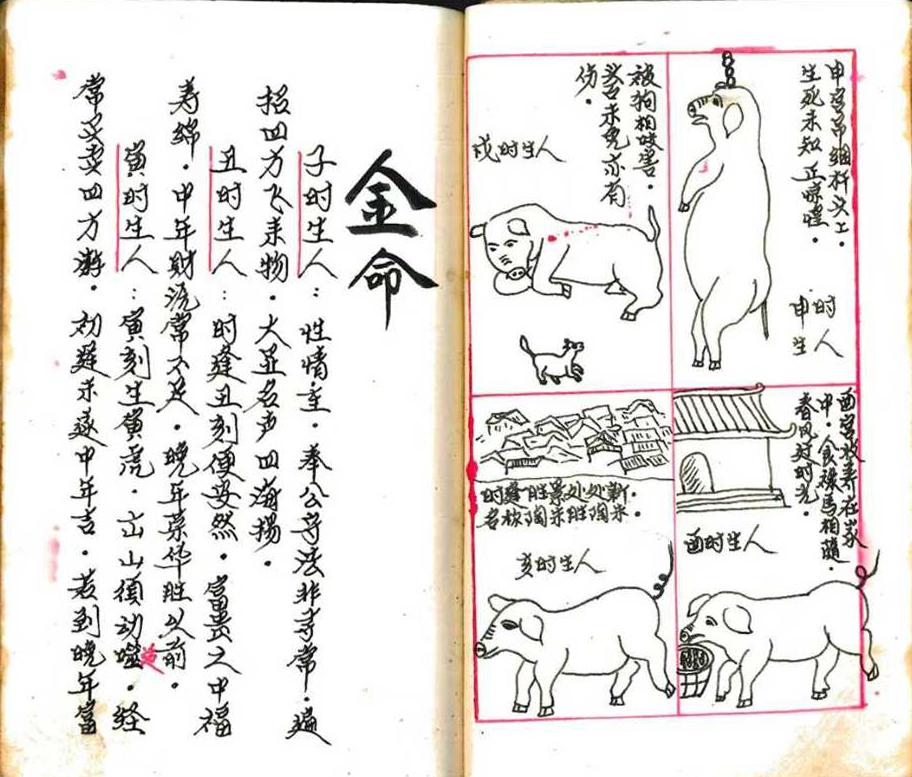 申宫吊綑杆头上。
生死未知正惊惶。
申时
生人
被狗相咬害。
未免亦有
伤。
戌时生人
酉宫 寿在家
中。食禄马相随。
春风对时光。
酉时生人
时逢胜景处处新。
亥时生人
金命
子时生人：性情重。奉公守法非寻常。遍
招四方飞来物。大显名声四海扬。
丑时生人：时逢丑刻便安然。富贵之中福
寿绵。中年财流常不足。晚年荣华胜以前。
寅时生人：寅刻生寅虎。山须动。经
常 四方游。初难未遂中年吉。若到晚年富